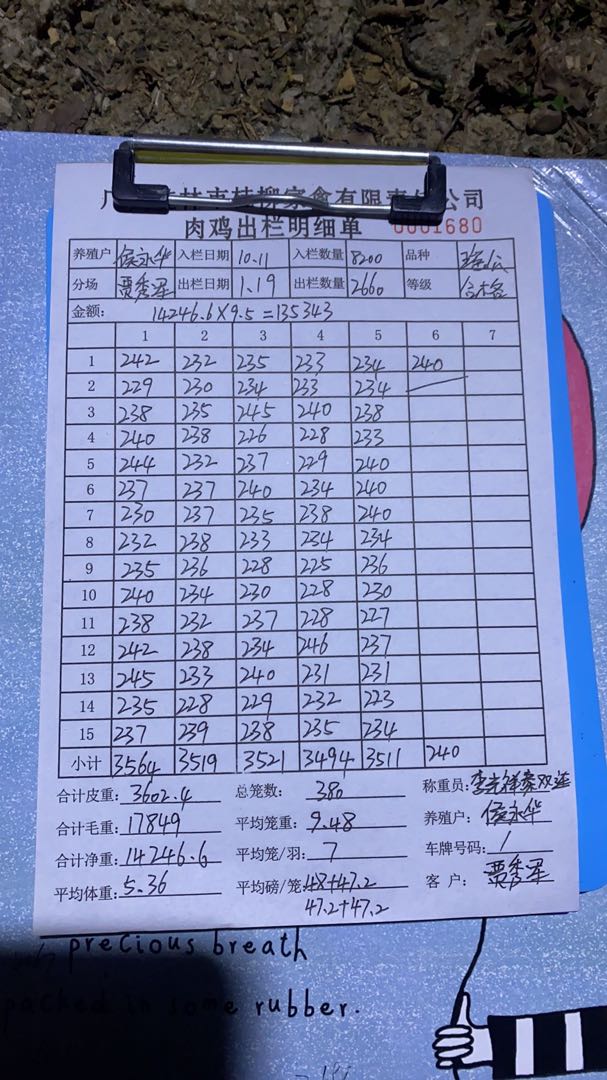 林市桂柳家禽有限责任公司
肉鸡出栏明细单 0001680
养殖户 侯永华 入栏日期 10.11 入栏数量 8200 品种
分场 贾秀军 出栏日期 1.19 出栏数量 2660 等级 合格
金额: 14246.6×9.5=135343
1 2 3 4 5 6 7
1 242 232 235 233 234 240
2 229 230 234 233 234
3 238 235 245 240 238
4 240 238 226 228 233
5 244 232 237 229 240
6 237 237 240 234 240
7 230 237 235 238 240
8 232 238 233 234 234
9 235 236 228 225 236
10 240 234 230 228 230
11 238 232 237 228 227
12 242 238 234 246 237
13 245 233 240 231 231
14 235 228 229 232 223
15 237 239 238 235 234
小计 3564 3519 3521 3494 3511 240
合计皮重: 3602.4 总笼数: 380 称重员:
合计毛重: 17849 平均笼重: 9.48 养殖户: 侯永华
合计净重: 14246.6 平均笼/羽: 7 车牌号码: /
平均体重: 5.36 平均磅/笼: 48+47.2 客 户: 贾秀军
47.2+47.2
precious breath
packed in some rubber.